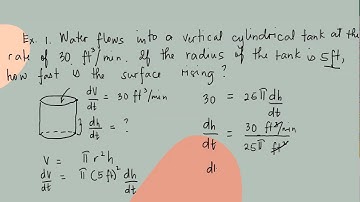 Ex. 1. Water flows into a vertical cylindrical tank at the
rate of 30 ft³/min. If the radius of the tank is 5ft,
how fast is the surface rising?
dV/dt = 30 ft³/min
dh/dt = ?
V = πr²h
dV/dt = π(5ft)² dh/dt
30 = 25π dh/dt
dh/dt = 30 ft³/min / 25π ft²
d